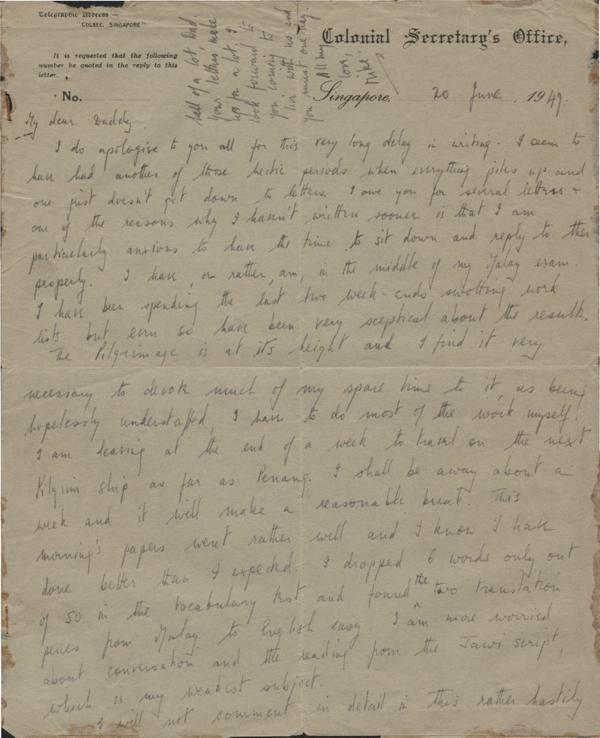 Telegraphic Address :—
"COLSEC, SINGAPORE"
It is requested that the following
number be quoted in the reply to this
letter.
No.
Colonial Secretary's Office,
Singapore, 20 June, 1949.
My dear Daddy,
I do apologise to you all for this very long delay in writing. I seem to
have had another of those hectic periods when everything piles up and
one just doesn't get down to letters. I owe you for several letters &
one of the reasons why I haven't written sooner is that I am
particularly anxious to have the time to sit down and reply to them
properly. I have, or rather, am, in the middle of my Malay exam.
I have been spending the last two week-ends swotting word
lists but even so have been very sceptical about the results.
The Pilgrimage is at its height and I find it very
necessary to devote much of my spare time to it, as being
hopelessly understaffed, I have to do most of the work myself!
I am leaving at the end of a week to travel on the next
Pilgrim ship as far as Penang. I shall be away about a
week and it will make a reasonable break. This
morning's papers went rather well and I know I have
done better than I expected. I dropped 6 words only out
of 50 in the vocabulary test and found the two translation
pieces from Malay to English easy. I am more worried
about conversation and the reading from the Jawi script,
which is my weakest subject.
I will not comment in detail in this rather hastily
hell of a lot, Dad.
Your letters mean
up to a lot. I
look forward to
you coming to
live with us and
you must one day.
All my
love,
Mike.